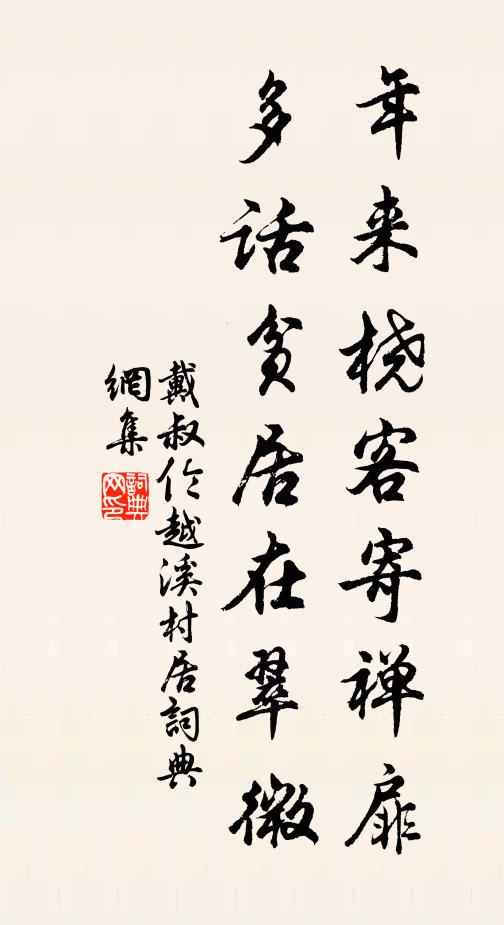 年来桡客寄禅扉
多话贫居在翠微
戴叔伦越溪村居词典
網集
詞典
网印